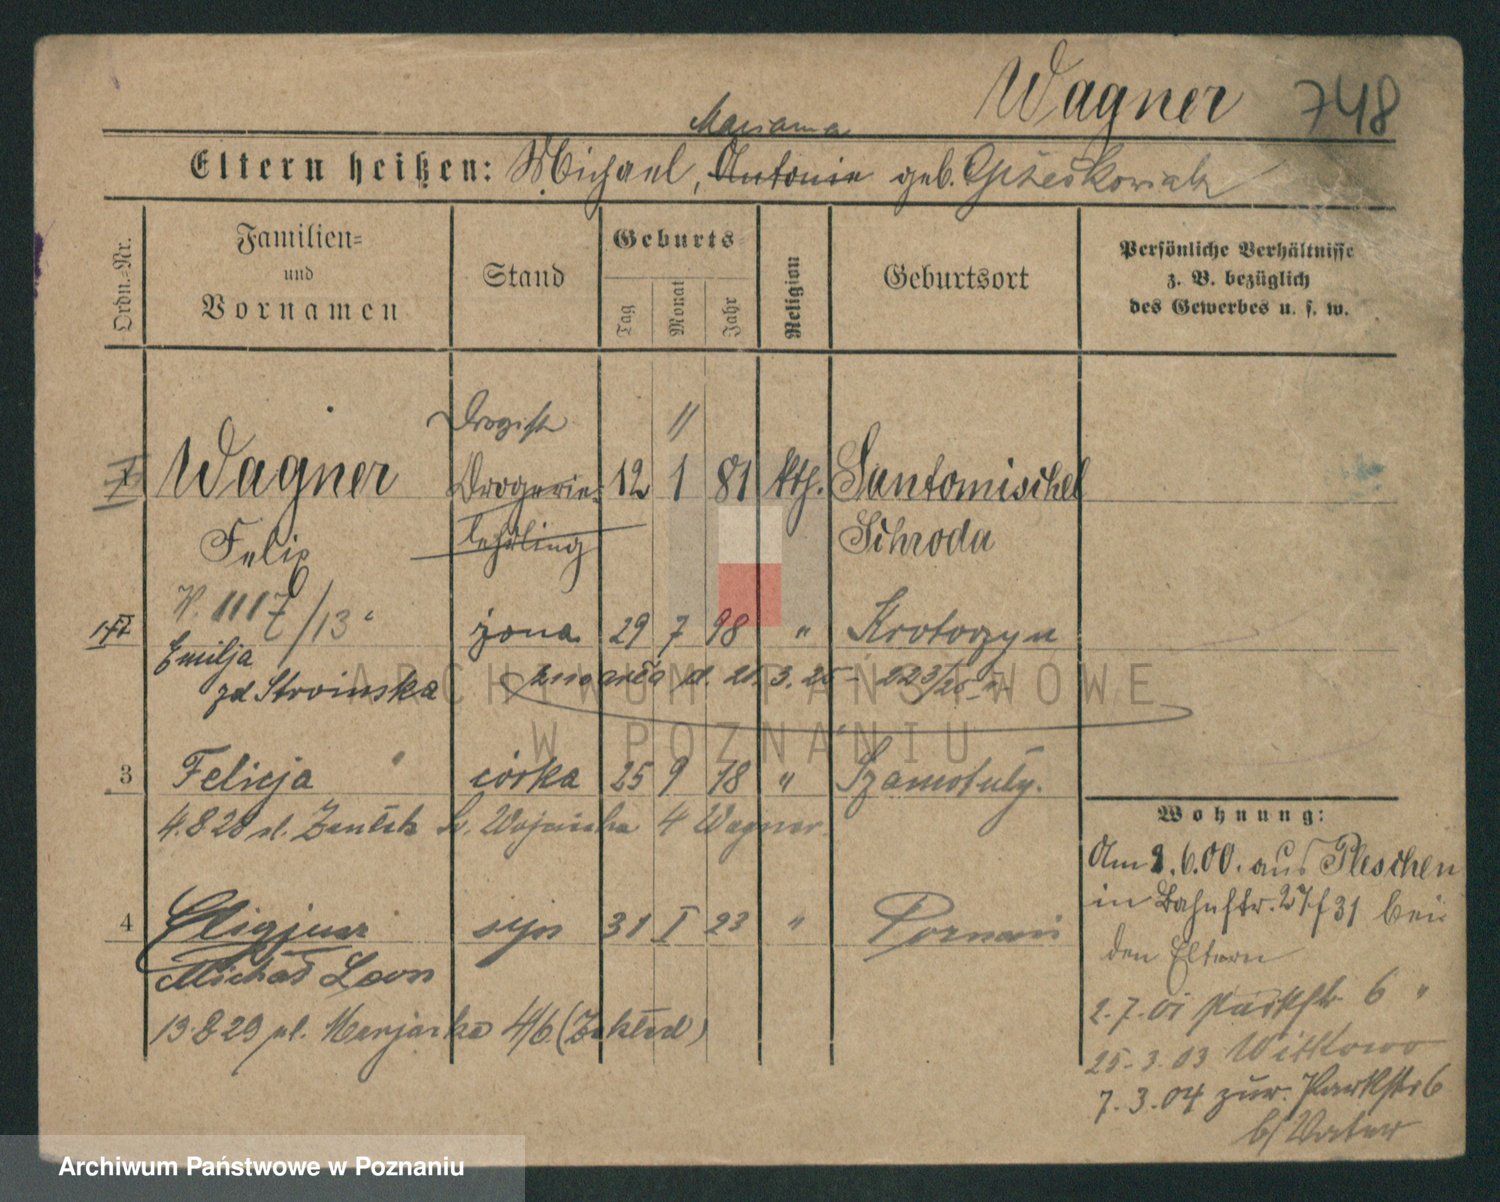 Wagner 748
Marianna
Eltern heißen: Michael, Antonie geb.
Ordn.-Nr.
Familien-
und
Vornamen
Stand
Geburts-
Tag
Monat
Jahr
Religion
Geburtsort
Persönliche Verhältnisse
z. B. bezüglich
des Gewerbes u. s. w.
Drogist 11
1 Wagner Drogerie- 12 1 81 kth. Santomischel
Felix lehrling Schroda
1117/13
żona 29 7 98 " Krotoszyn
Emilja
zd Stroinska zmarła d. 21.3.25
3 Felicja córka 25 9 18 " Szamotuły.
4.8.28 Wagner
4 Zligjusz syn 31 I 23 " Poznań
Michał Leon
13.8.29 pl. 4/6 (Zakład)
Wohnung:
Am 2.6.00. aus Pleschen
in Bahnstr. 27/31 bei
den Eltern
2.7.01 Parkstr. 6 "
25.3.03 Witkowo
7.3.04 zur. Parkstr 6
b/ Vater
ARCHIWUM PAŃSTWOWE
W POZNANIU
Archiwum Państwowe w Poznaniu